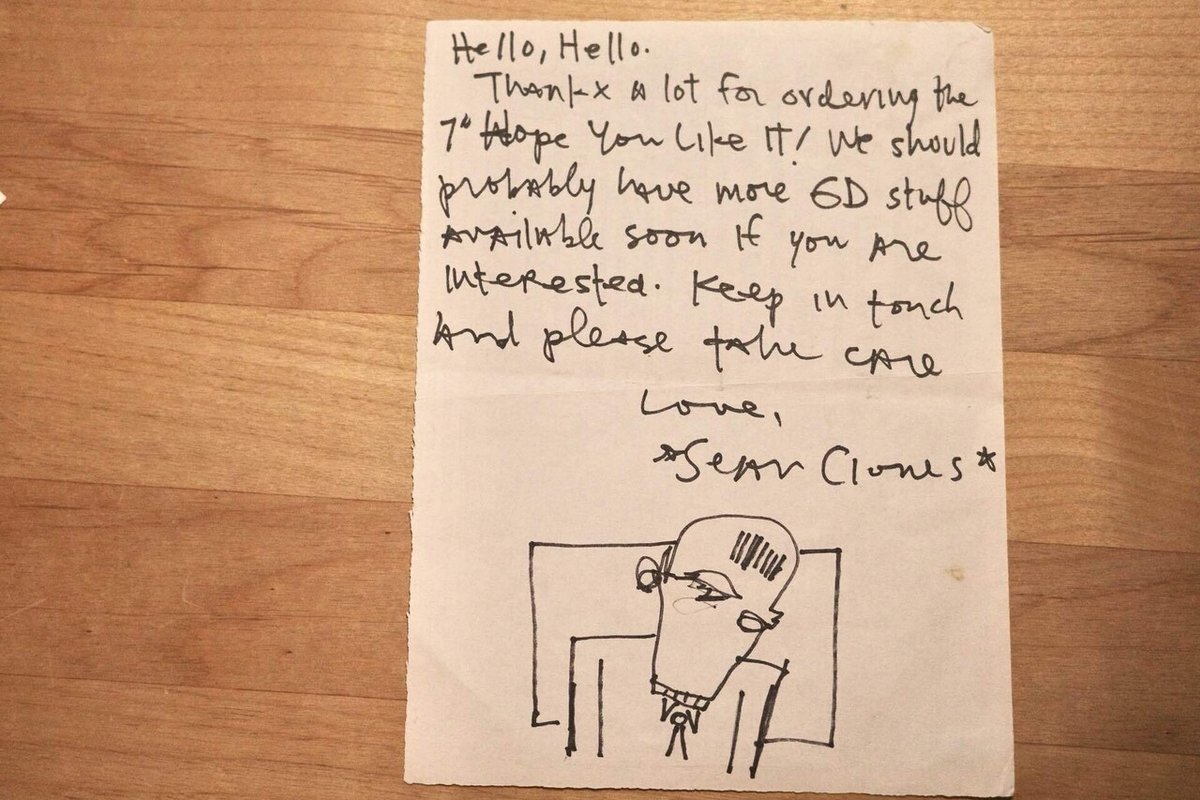 Hello, Hello.
Thankx a lot for ordering the
7" Hope You Like It! We should
probably have more GD stuff
available soon if you are
interested. Keep in touch
and please take care
Love,
*Sean Clones*